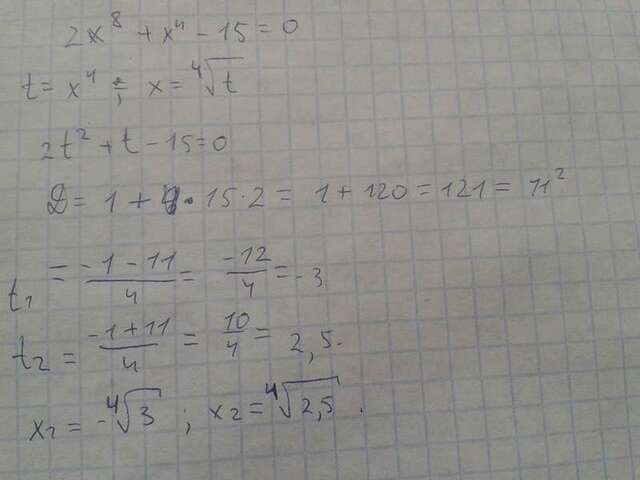 2x⁸ + x⁴ - 15 = 0
t = x⁴ ; x = ⁴√t
2t² + t - 15 = 0
D = 1 + 4 · 15 · 2 = 1 + 120 = 121 = 11²
t₁ = (-1 - 11)/4 = -12/4 = -3
t₂ = (-1 + 11)/4 = 10/4 = 2,5.
x₁ = -⁴√3 ; x₂ = ⁴√2,5 .